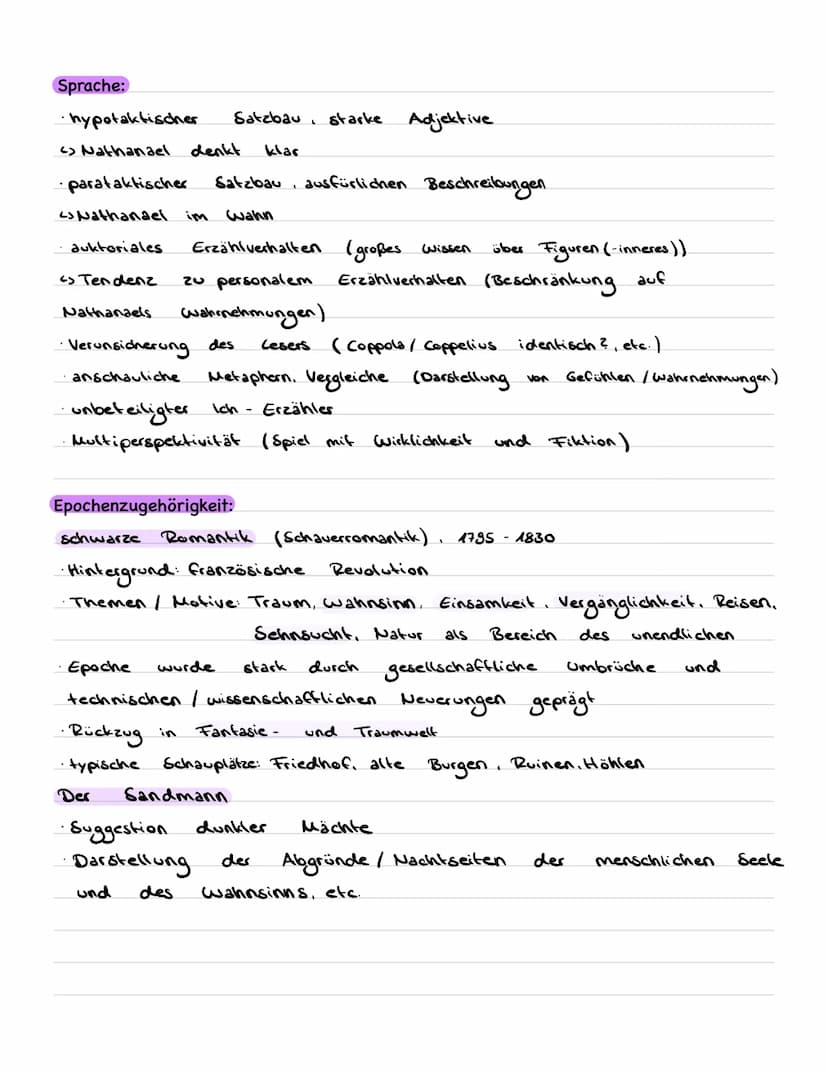 Sprache:
· hypotaktischer Satzbau, starke Adjektive
↳ Nathanael denkt klar
· parataktischer Satzbau, ausfürlichen Beschreibungen
↳ Nathanael im Wahn
· auktoriales Erzählverhalten (großes Wissen über Figuren (-inneres))
↳ Tendenz zu personalem Erzählverhalten (Beschränkung auf
Nathanaels Wahrnehmungen)
· Verunsicherung des Lesers (Coppola / Coppelius identisch?, etc.)
· anschauliche Metaphern, Vergleiche (Darstellung von Gefühlen / Wahrnehmungen)
· unbeteiligter Ich - Erzähler
· Multiperspektivität (Spiel mit Wirklichkeit und Fiktion)
Epochenzugehörigkeit:
schwarze Romantik (Schauerromantik), 1795 - 1830
· Hintergrund: französische Revolution
· Themen / Motive: Traum, Wahnsinn, Einsamkeit, Vergänglichkeit, Reisen,
Sehnsucht, Natur als Bereich des unendlichen
· Epoche wurde stark durch gesellschaftliche Umbrüche und
technischen / wissenschaftlichen Neuerungen geprägt
· Rückzug in Fantasie- und Traumwelt
· typische Schauplätze: Friedhof, alte Burgen, Ruinen, Höhlen
Der Sandmann
· Suggestion dunkler Mächte
· Darstellung der Abgründe / Nachtseiten der menschlichen Seele
und des Wahnsinns, etc.